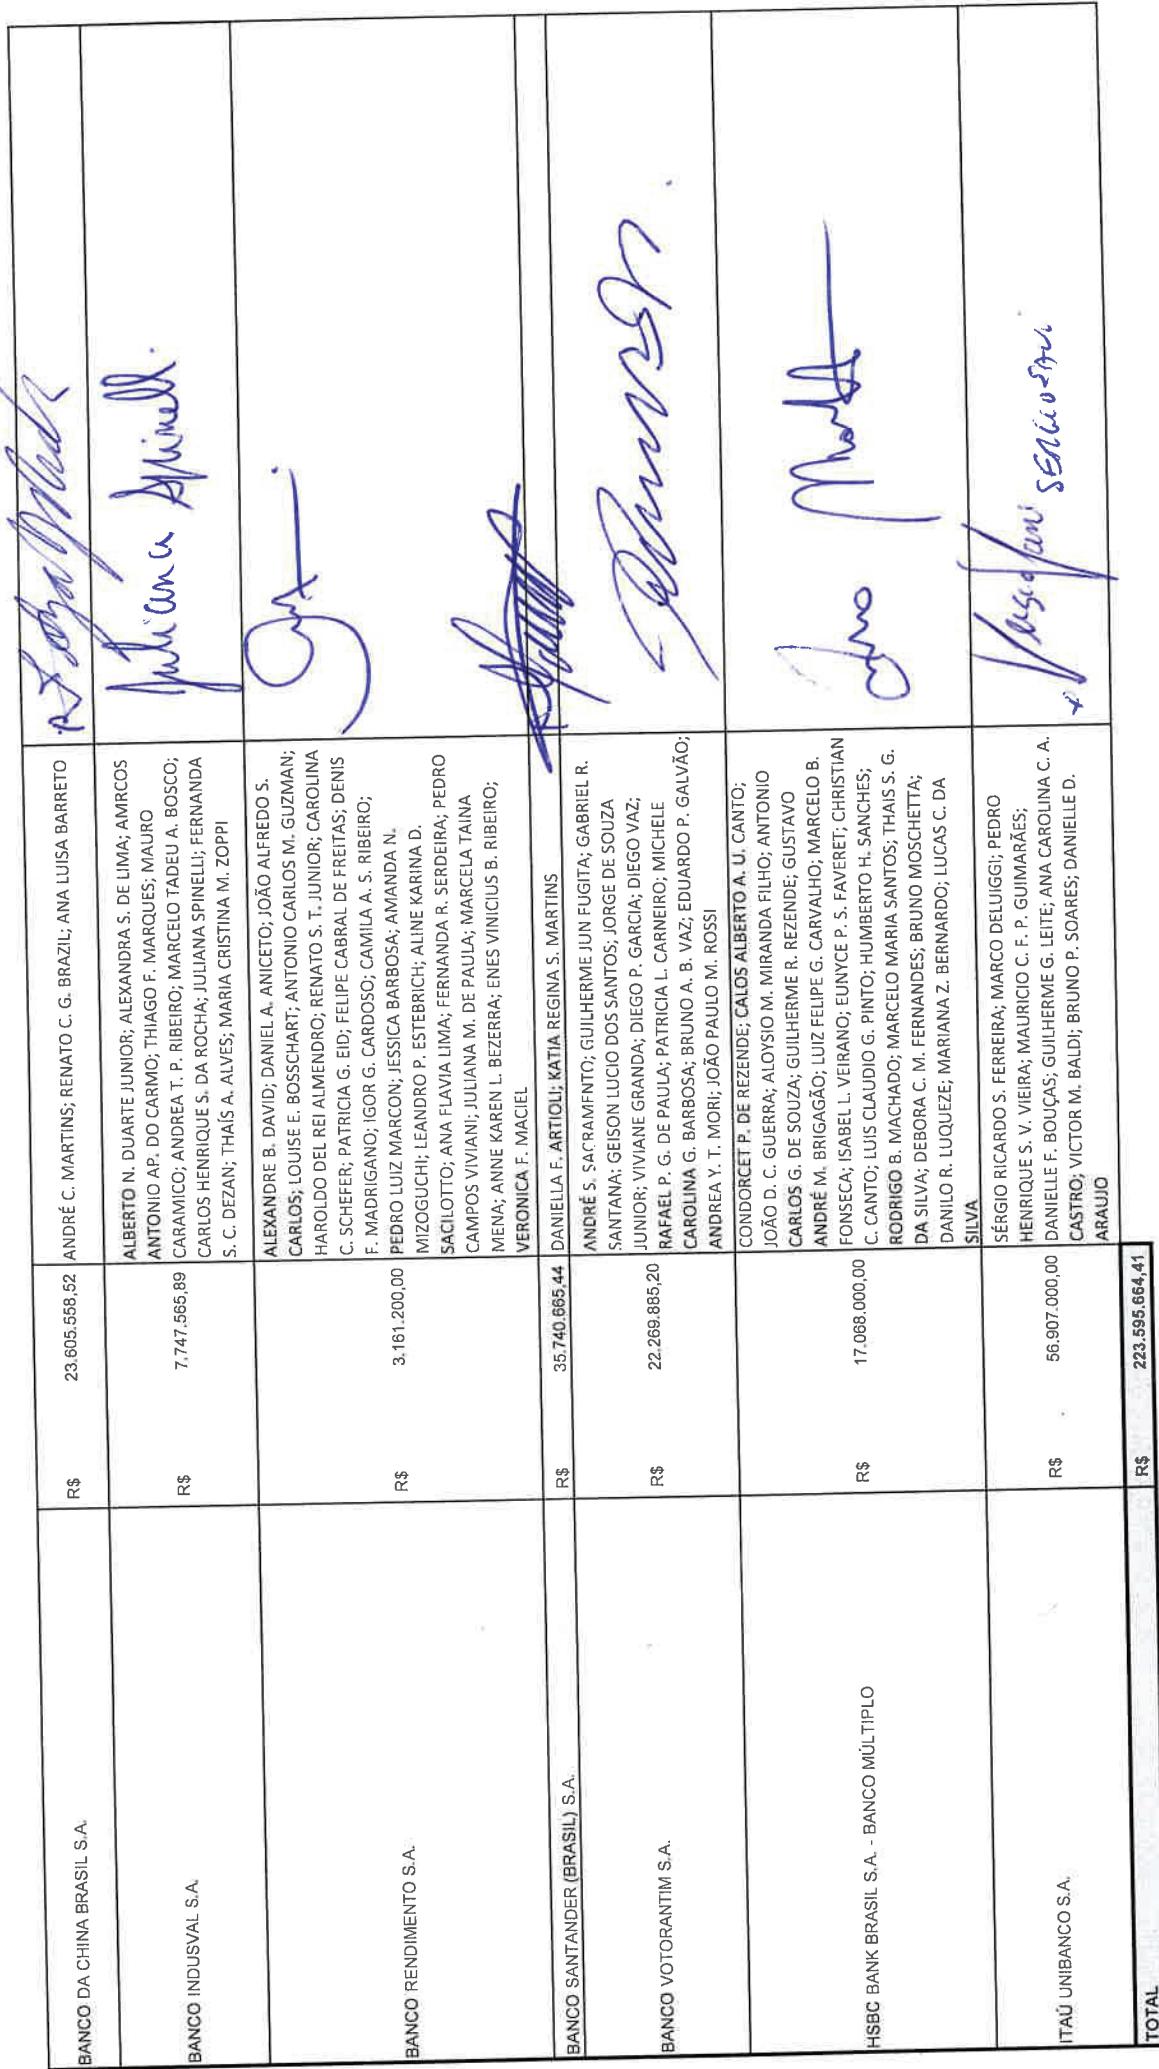 BANCO DA CHINA BRASIL S.A. R$ 23.605.558,52 ANDRÉ C. MARTINS; RENATO C. G. BRAZIL; ANA LUISA BARRETO
BANCO INDUSVAL S.A. R$ 7.747.565,89
ALBERTO N. DUARTE JUNIOR; ALEXANDRA S. DE LIMA; AMRCOS
ANTONIO AP. DO CARMO; THIAGO F. MARQUES; MAURO
CARAMICO; ANDREA T. P. RIBEIRO; MARCELO TADEU A. BOSCO;
CARLOS HENRIQUE S. DA ROCHA; JULIANA SPINELLI; FERNANDA
S. C. DEZAN; THAÍS A. ALVES; MARIA CRISTINA M. ZOPPI
Juliana Spinelli
BANCO RENDIMENTO S.A. R$ 3.161.200,00
ALEXANDRE B. DAVID; DANIEL A. ANICETO; JOÃO ALFREDO S.
CARLOS; LOUISE E. BOSSCHART; ANTONIO CARLOS M. GUZMAN;
HAROLDO DEL REI ALMENDRO; RENATO S. T. JUNIOR; CAROLINA
C. SCHEFER; PATRICIA G. EID; FELIPE CABRAL DE FREITAS; DENIS
F. MADRIGANO; IGOR G. CARDOSO; CAMILA A. S. RIBEIRO;
PEDRO LUIZ MARCON; JESSICA BARBOSA; AMANDA N.
MIZOGUCHI; LEANDRO P. ESTEBRICH; ALINE KARINA D.
SACILOTTO; ANA FLAVIA LIMA; FERNANDA R. SERDEIRA; PEDRO
CAMPOS VIVIANI; JULIANA M. DE PAULA; MARCELA TAINA
MENA; ANNE KAREN L. BEZERRA; ENES VINICIUS B. RIBEIRO;
VERONICA F. MACIEL
BANCO SANTANDER (BRASIL) S.A. R$ 35.740.665,44 DANIELLA F. ARTIOLI; KATIA REGINA S. MARTINS
BANCO VOTORANTIM S.A. R$ 22.269.885,20
ANDRÉ S. SACRAMENTO; GUILHERME JUN FUGITA; GABRIEL R.
SANTANA; GEISON LUCIO DOS SANTOS; JORGE DE SOUZA
JUNIOR; VIVIANE GRANDA; DIEGO P. GARCIA; DIEGO VAZ;
RAFAEL P. G. DE PAULA; PATRICIA L. CARNEIRO; MICHELE
CAROLINA G. BARBOSA; BRUNO A. B. VAZ; EDUARDO P. GALVÃO;
ANDREA Y. T. MORI; JOÃO PAULO M. ROSSI
HSBC BANK BRASIL S.A. - BANCO MÚLTIPLO R$ 17.068.000,00
CONDORCET P. DE REZENDE; CALOS ALBERTO A. U. CANTO;
JOÃO D. C. GUERRA; ALOYSIO M. MIRANDA FILHO; ANTONIO
CARLOS G. DE SOUZA; GUILHERME R. REZENDE; GUSTAVO
ANDRÉ M. BRIGAGÃO; LUIZ FELIPE G. CARVALHO; MARCELO B.
FONSECA; ISABEL L. VEIRANO; EUNYCE P. S. FAVERET; CHRISTIAN
C. CANTO; LUIS CLAUDIO G. PINTO; HUMBERTO H. SANCHES;
RODRIGO B. MACHADO; MARCELO MARIA SANTOS; THAIS S. G.
DA SILVA; DEBORA C. M. FERNANDES; BRUNO MOSCHETTA;
DANILO R. LUQUEZE; MARIANA Z. BERNARDO; LUCAS C. DA
SILVA
ITAÚ UNIBANCO S.A. R$ 56.907.000,00
SÉRGIO RICARDO S. FERREIRA; MARCO DELUIGGI; PEDRO
HENRIQUE S. V. VIEIRA; MAURICIO C. F. P. GUIMARÃES;
DANIELLE F. BOUÇAS; GUILHERME G. LEITE; ANA CAROLINA C. A.
CASTRO; VICTOR M. BALDI; BRUNO P. SOARES; DANIELLE D.
ARAUJO
TOTAL R$ 223.595.664,41